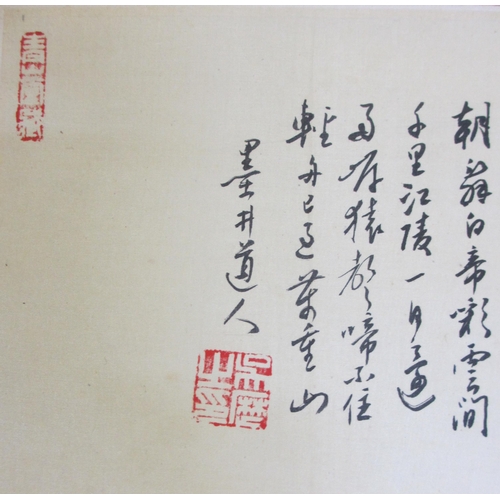 朝辭白帝彩雲間
千里江陵一日還
兩岸猿聲啼不住
輕舟已過萬重山
墨井道人
吳歷之印